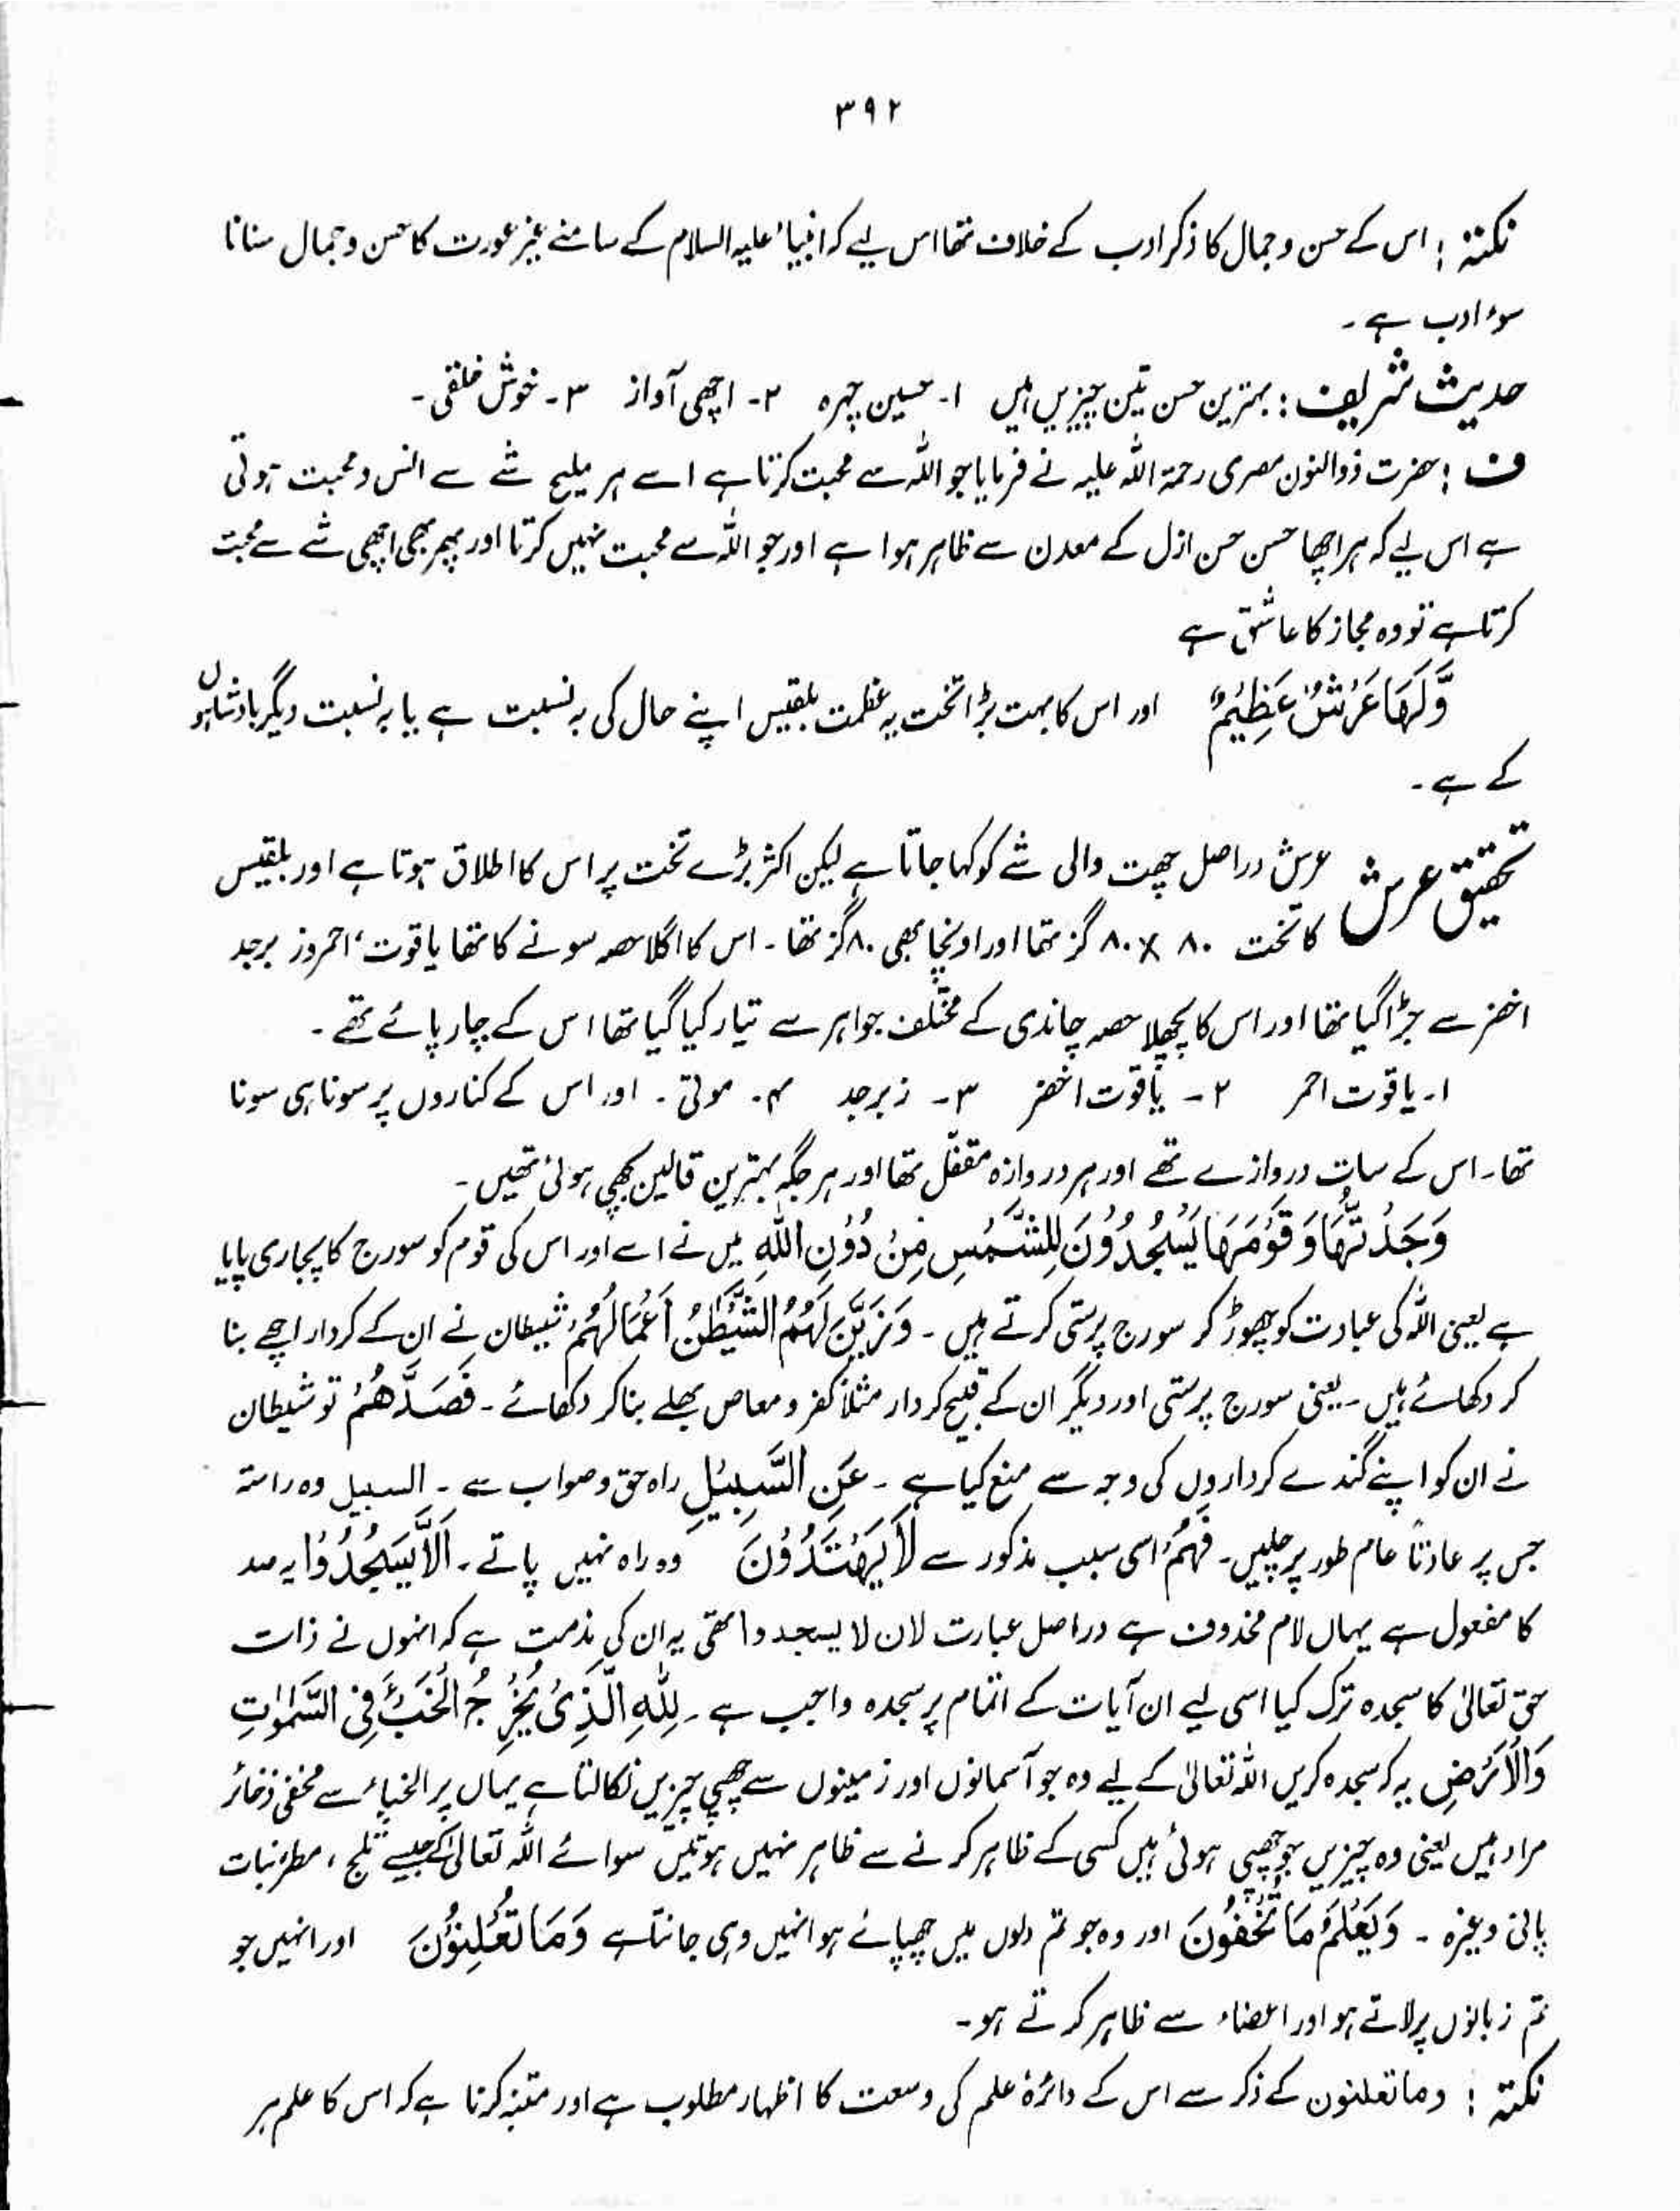 ۳۹۲
نکتہ : اس کے حسن و جمال کا ذکر ادب کے خلاف تھا اس لیے کہ انبیاء علیہ السلام کے سامنے غیر عورت کا حسن و جمال سنانا
سوء ادب ہے ۔
حدیث شریف : بہترین حسن تین چیزیں ہیں ۱۔ حسین چہرہ ۲۔ اچھی آواز ۳۔ خوش خلقی ۔
ف : حضرت ذوالنون مصری رحمۃ اللہ علیہ نے فرمایا جو اللہ سے محبت کرتا ہے اسے ہر ملیح شے سے انس و محبت ہوتی
ہے اس لیے کہ ہر اچھا حسن حسن ازل کے معدن سے ظاہر ہوا ہے اور جو اللہ سے محبت نہیں کرتا اور پھر بھی اچھی شے سے محبت
کرتا ہے تو وہ مجاز کا عاشق ہے
وَّلَهَا عَرْشٌ عَظِيْمٌ اور اس کا بہت بڑا تخت یہ عظمت بلقیس اپنے حال کی بہ نسبت ہے یا بہ نسبت دیگر بادشاہوں
کے ہے ۔
تحقیق عرش عرش دراصل چھت والی شے کو کہا جاتا ہے لیکن اکثر بڑے تخت پر اس کا اطلاق ہوتا ہے اور بلقیس
کا تخت ۸۰ × ۸۰ گز تھا اور اونچا بھی ۸۰ گز تھا ۔ اس کا اگلا حصہ سونے کا تھا یاقوت، احمر و زبرجد
اخضر سے جڑا گیا تھا اور اس کا پچھلا حصہ چاندی کے مختلف جواہر سے تیار کیا گیا تھا اس کے چار پائے تھے ۔
۱۔ یاقوت احمر ۲۔ یاقوت اخضر ۳۔ زبرجد ۴۔ موتی ۔ اور اس کے کناروں پر سونا ہی سونا
تھا۔ اس کے سات دروازے تھے اور ہر دروازہ مقفل تھا اور ہر جگہ بہترین قالین بچھی ہوئی تھیں ۔
وَجَدْتُّهَا وَ قَوْمَهَا يَسْجُدُوْنَ لِلشَّمْسِ مِنْ دُوْنِ اللهِ میں نے اسے اور اس کی قوم کو سورج کا پجاری پایا
ہے یعنی اللہ کی عبادت کو چھوڑ کر سورج پرستی کرتے ہیں ۔ وَ زَيَّنَ لَهُمُ الشَّيْطٰنُ اَعْمَالَهُمْ شیطان نے ان کے کردار اچھے بنا
کر دکھائے ہیں ۔ یعنی سورج پرستی اور دیگر ان کے قبیح کردار مثلاً کفر و معاص بھلے بنا کر دکھائے ۔ فَصَدَّهُمْ تو شیطان
نے ان کو اپنے گندے کرداروں کی وجہ سے منع کیا ہے ۔ عَنِ السَّبِيْلِ راہ حق و صواب سے ۔ السبیل وہ راستہ
جس پر عادتاً عام طور پر چلیں ۔ فَهُمْ اسی سبب مذکور سے لَا يَهْتَدُوْنَ وہ راہ نہیں پاتے ۔ اَلَّا يَسْجُدُوْا یہ صد
کا مفعول ہے یہاں لام مخذوف ہے دراصل عبارت لان لا یسجدوا تھی یہ ان کی مذمت ہے کہ انہوں نے ذات
حق تعالیٰ کا سجدہ ترک کیا اسی لیے ان آیات کے اتمام پر سجدہ واجب ہے ۔ لِلّٰهِ الَّذِيْ يُخْرِجُ الْخَبْءَ فِي السَّمٰوٰتِ
وَالْاَرْضِ یہ کہ سجدہ کریں اللہ تعالیٰ کے لیے وہ جو آسمانوں اور زمینوں سے چھپی چیزیں نکالتا ہے یہاں پر الخباء سے مخفی ذخائر
مراد ہیں یعنی وہ چیزیں جو چھپی ہوئی ہیں کسی کے ظاہر کرنے سے ظاہر نہیں ہوتیں سوائے اللہ تعالیٰ کے جیسے ثلج ، مطر، نبات
پانی وغیرہ ۔ وَ يَعْلَمُ مَا تُخْفُوْنَ اور وہ جو تم دلوں میں چھپائے ہو انہیں وہی جانتا ہے وَمَا تُعْلِنُوْنَ اور انہیں جو
تم زبانوں پر لاتے ہو اور اعضاء سے ظاہر کرتے ہو ۔
نکتہ : وما تعلنون کے ذکر سے اس کے دائرۂ علم کی وسعت کا اظہار مطلوب ہے اور متنبہ کرنا ہے کہ اس کا علم ہر